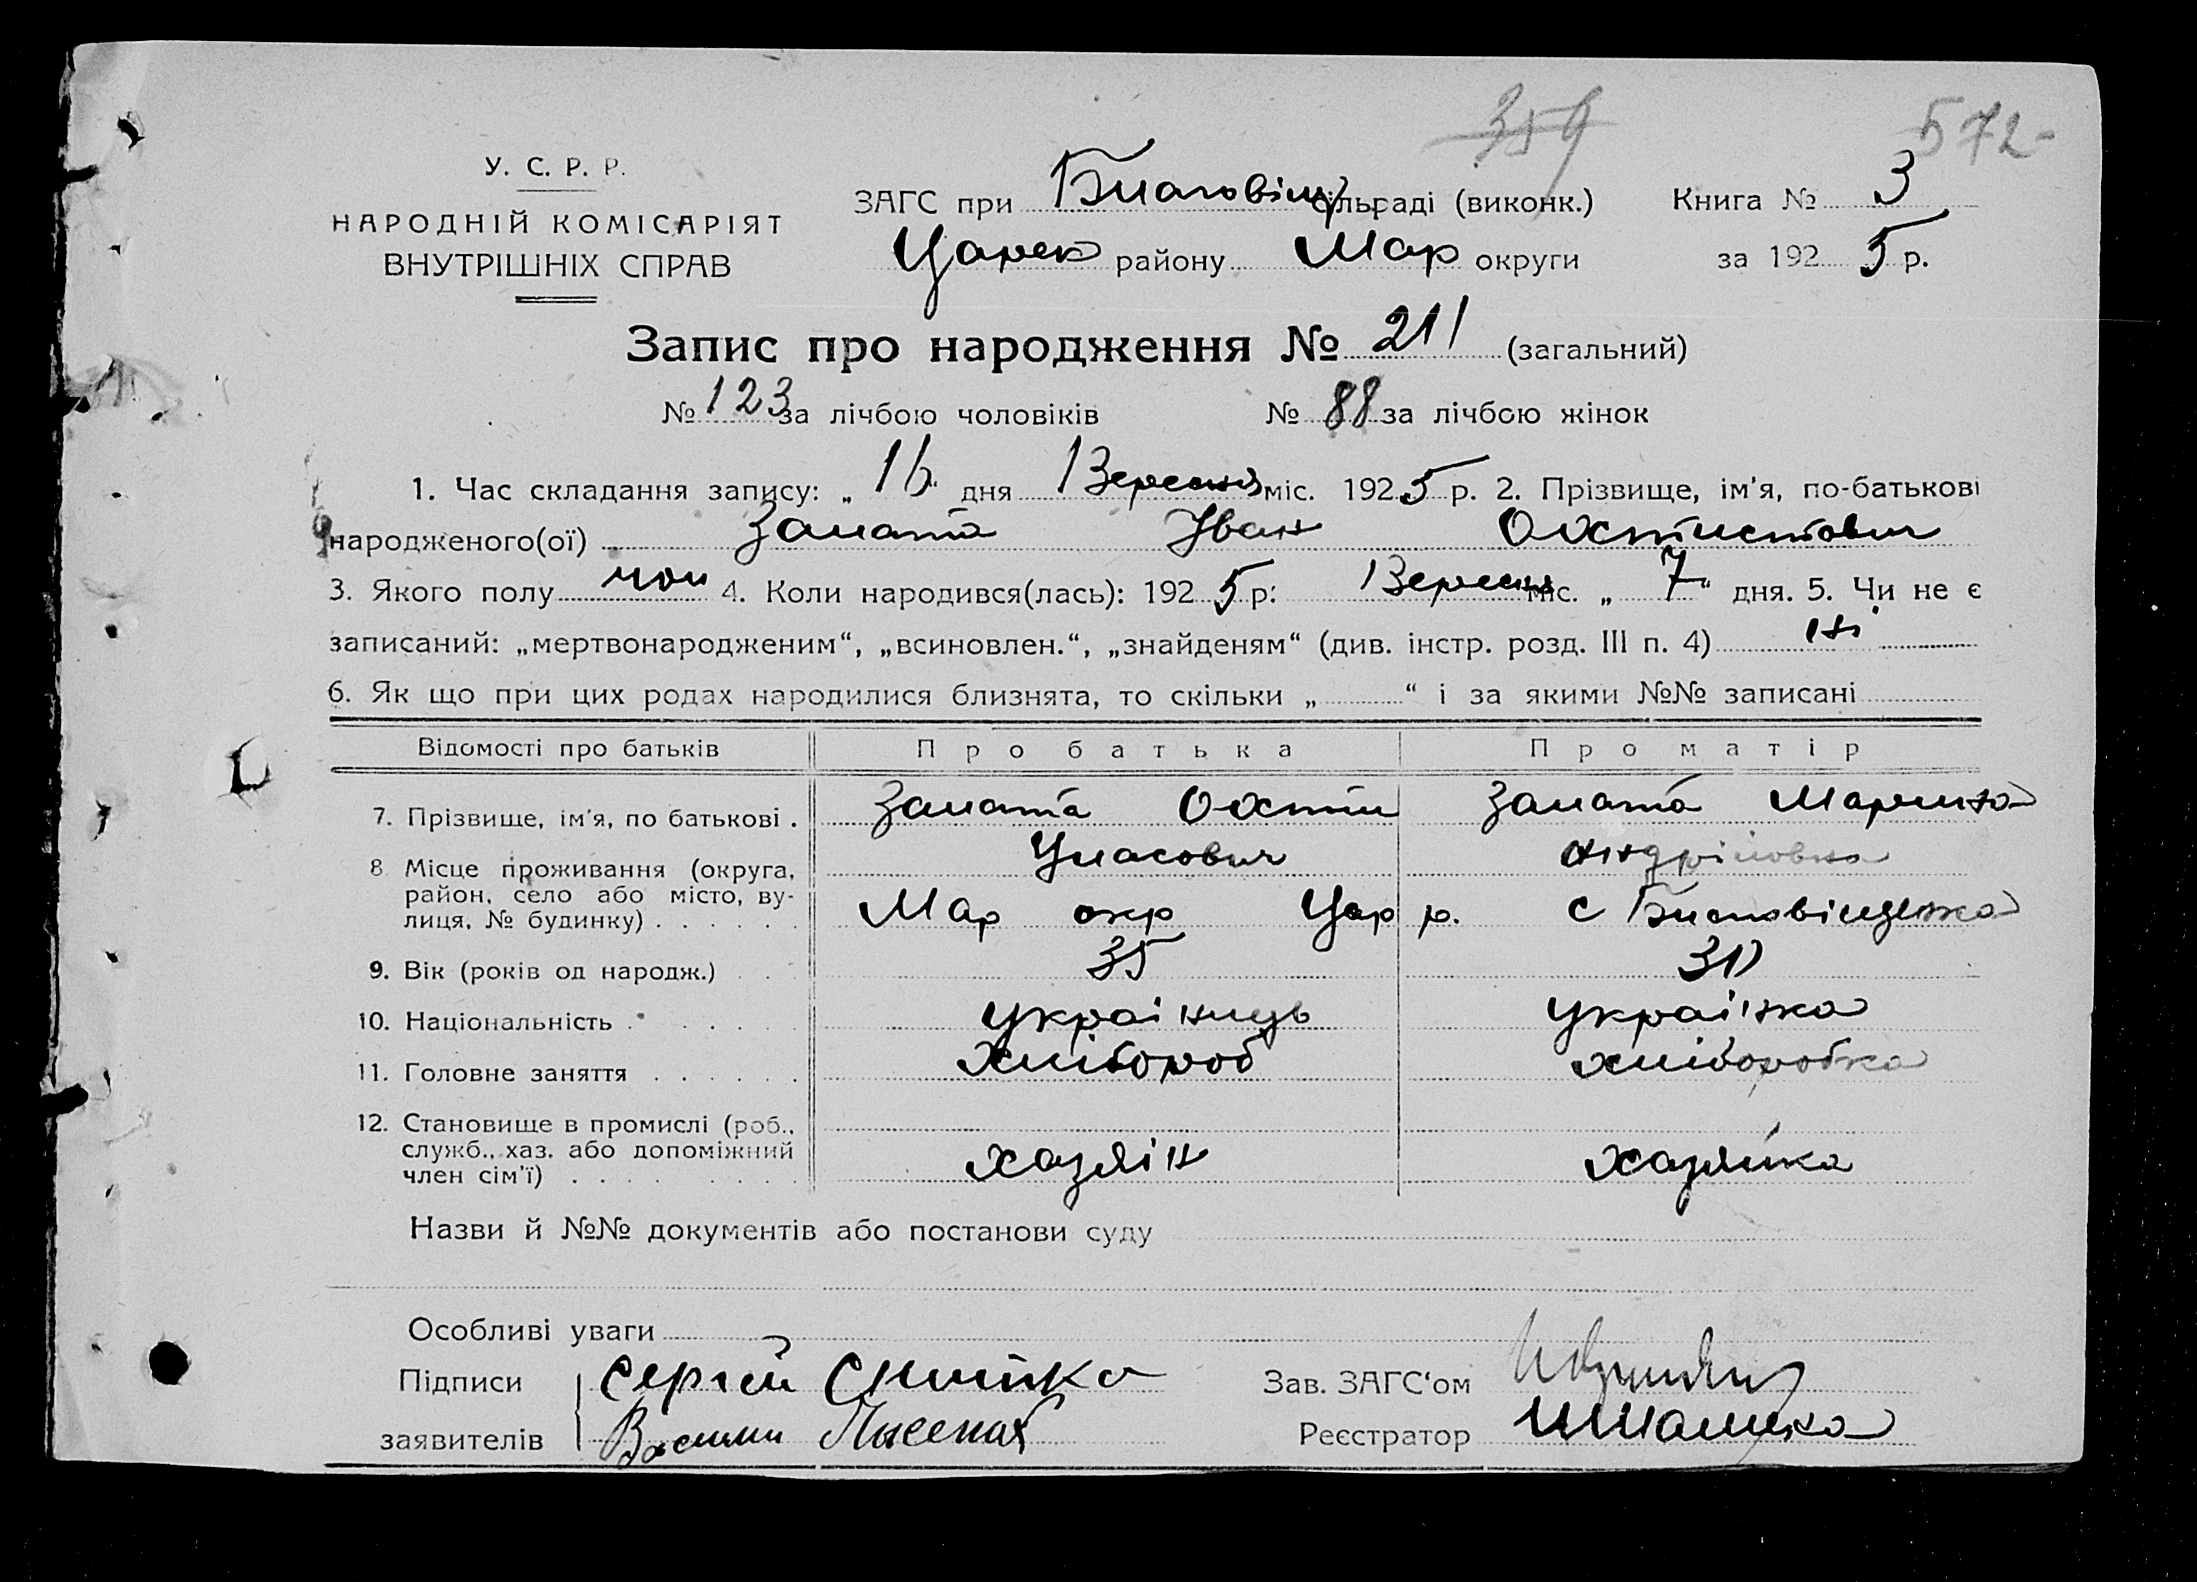 359 572-
У. С. Р. Р.
НАРОДНІЙ КОМІСАРІЯТ
ВНУТРІШНІХ СПРАВ
ЗАГС при Благовіщ сільраді (виконк.) Книга № 3
Царек району Мар округи за 1925 р.
Запис про народження № 211 (загальний)
№ 123 за лічбою чоловіків № 88 за лічбою жінок
1. Час складання запису: „16 дня Вересня міс. 1925 р. 2. Прізвище, ім'я, по-батькові
народженого(ої) Залата Іван
3. Якого полу чол 4. Коли народився(лась): 1925 р: Вересня міс. „7" дня. 5. Чи не є
записаний: „мертвонародженим“, „всиновлен.“, „знайденям“ (див. інстр. розд. III п. 4) ні
6. Як що при цих родах народилися близнята, то скільки „ “ і за якими №№ записані
Відомості про батьків Про батька Про матір
7. Прізвище, ім'я, по батькові . Залата Залата Марина
Уласович Андріловна
8 Місце проживання (округа,
район, село або місто, ву-
лиця, № будинку) . . . . . . Мар окр Цар р. с Благовіщенка
9. Вік (років од народж.) . . 35 30
10. Національність . . . . . . Україниць Українка
11. Головне заняття . . . . . . хлібороб хліборобка
12. Становище в промислі (роб.,
служб., хаз. або допоміжний
член сім'ї) . . . . . . . . хазяін хазяйка
Назви й №№ документів або постанови суду
Особливі уваги
Підписи Сергій Снитка Зав. ЗАГС‘ом
заявителів Василий Реєстратор